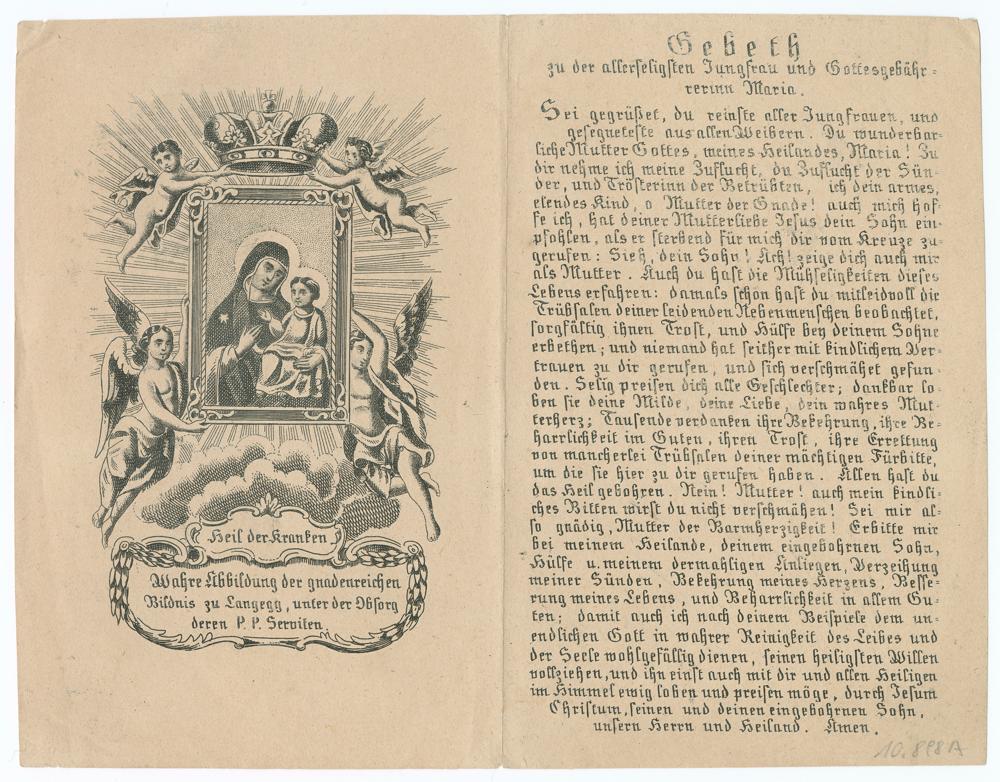 Heil der Kranken
Wahre Abbildung der gnadenreichen
Bildnis zu Langegg, unter der Obsorg
deren P. P. Serviten.
Gebeth
zu der allerseligsten Jungfrau und Gottesgebähr=
rerinn Maria.
Sei gegrüßet, du reinste aller Jungfrauen, und
gesegneteste aus allen Weibern. Du wunderbar=
liche Mutter Gottes, meines Heilandes, Maria! Zu
dir nehme ich meine Zuflucht, du Zuflucht der Sün=
der, und Trösterinn der Betrübten, ich dein armes,
elendes Kind, o Mutter der Gnade! auch mich hof=
fe ich, hat deiner Mutterliebe Jesus dein Sohn em=
pfohlen, als er sterbend für mich dir vom Kreuze zu=
gerufen: Sieh, dein Sohn! Ach! zeige dich auch mir
als Mutter. Auch du hast die Mühseligkeiten dieses
Lebens erfahren: damals schon hast du mitleidvoll die
Trübsalen deiner leidenden Nebenmenschen beobachtet,
sorgfältig ihnen Trost, und Hülfe bey deinem Sohne
erbethen; und niemand hat seither mit kindlichem Ver=
trauen zu dir gerufen, und sich verschmähet gefun=
den. Selig preisen dich alle Geschlechter; dankbar lo=
ben sie deine Milde, deine Liebe, dein wahres Mut=
terherz; Tausende verdanken ihre Bekehrung, ihre Be=
harrlichkeit im Guten, ihren Trost, ihre Errettung
von mancherlei Trübsalen deiner mächtigen Fürbitte,
um die sie hier zu dir gerufen haben. Allen hast du
das Heil gebohren. Nein! Mutter! auch mein kindli=
ches Bitten wirst du nicht verschmähen! Sei mir al=
so gnädig, Mutter der Barmherzigkeit! Erbitte mir
bei meinem Heilande, deinem eingebohrnen Sohn,
Hülfe u. meinem dermahligen Anliegen, Verzeihung
meiner Sünden, Bekehrung meines Herzens, Besse=
rung meines Lebens, und Beharrlichkeit in allem Gu=
ten; damit auch ich nach deinem Beispiele dem un=
endlichen Gott in wahrer Reinigkeit des Leibes und
der Seele wohlgefällig dienen, seinen heiligsten Willen
vollziehen, und ihn einst auch mit dir und allen Heiligen
im Himmel ewig loben und preisen möge, durch Jesum
Christum, seinen und deinen eingebohrnen Sohn,
unsern Herrn und Heiland. Amen.
10.898A